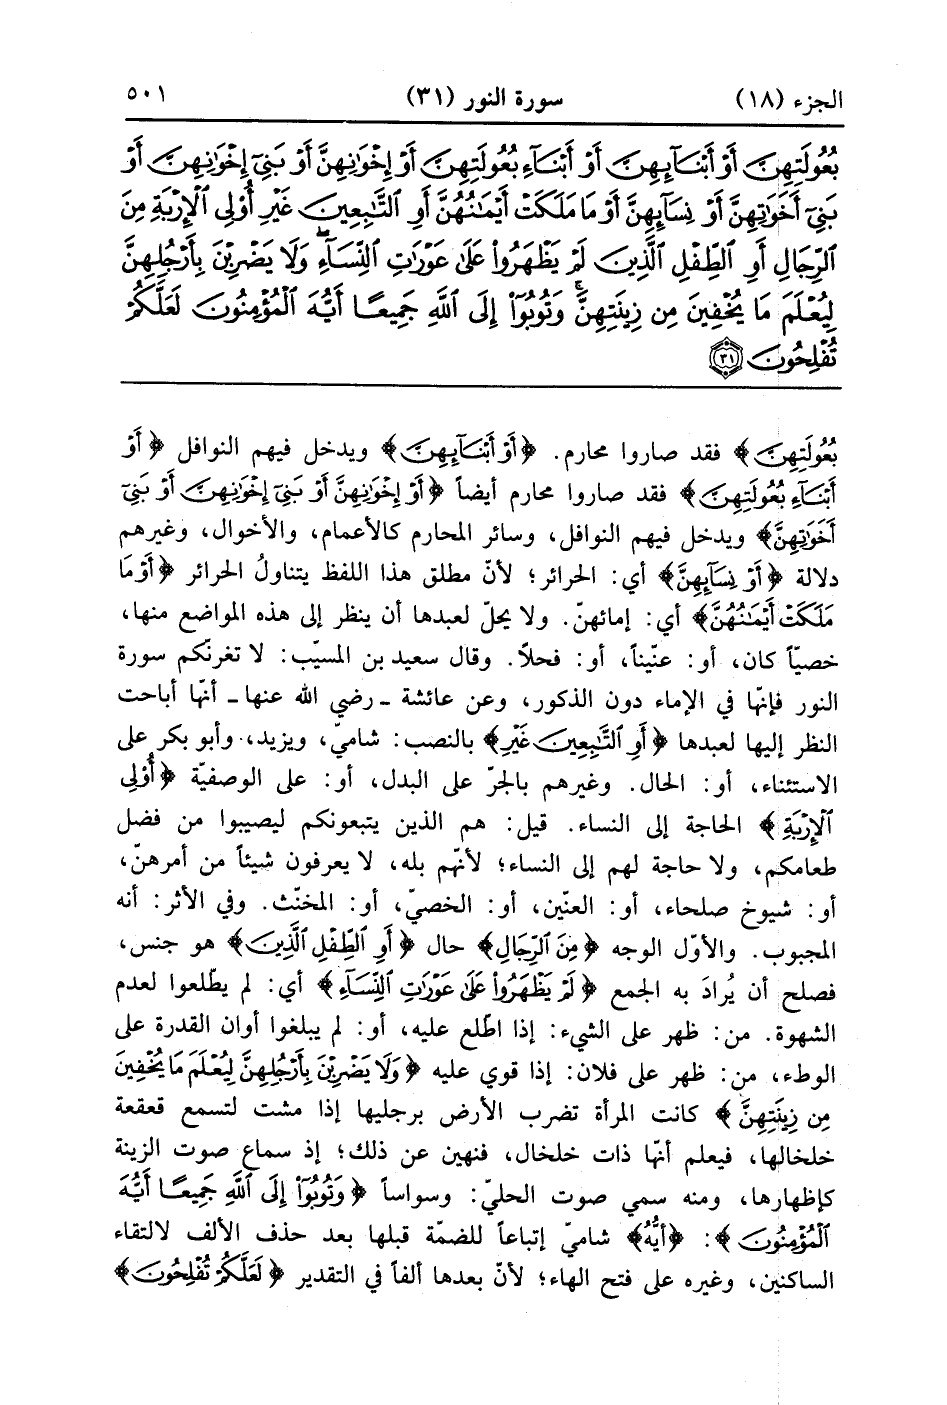 الجزء (١٨) سورة النور (٣١) ٥٠١
بُعُولَتِهِنَّ أَوْ أَبْنَآئِهِنَّ أَوْ أَبْنَآءِ بُعُولَتِهِنَّ أَوْ إِخْوَٰنِهِنَّ أَوْ بَنِىٓ إِخْوَٰنِهِنَّ أَوْ
بَنِىٓ أَخَوَٰتِهِنَّ أَوْ نِسَآئِهِنَّ أَوْ مَا مَلَكَتْ أَيْمَٰنُهُنَّ أَوِ ٱلتَّٰبِعِينَ غَيْرِ أُوْلِى ٱلْإِرْبَةِ مِنَ
ٱلرِّجَالِ أَوِ ٱلطِّفْلِ ٱلَّذِينَ لَمْ يَظْهَرُواْ عَلَىٰ عَوْرَٰتِ ٱلنِّسَآءِ ۖ وَلَا يَضْرِبْنَ بِأَرْجُلِهِنَّ
لِيُعْلَمَ مَا يُخْفِينَ مِن زِينَتِهِنَّ ۚ وَتُوبُوٓاْ إِلَى ٱللَّهِ جَمِيعًا أَيُّهَ ٱلْمُؤْمِنُونَ لَعَلَّكُمْ
تُفْلِحُونَ ﴿٣١﴾
بُعُولَتِهِنَّ﴾ فقد صاروا محارم. ﴿أَوْ أَبْنَآئِهِنَّ﴾ ويدخل فيهم النوافل ﴿أَوْ
أَبْنَآءِ بُعُولَتِهِنَّ﴾ فقد صاروا محارم أيضاً ﴿أَوْ إِخْوَٰنِهِنَّ أَوْ بَنِىٓ إِخْوَٰنِهِنَّ أَوْ بَنِىٓ
أَخَوَٰتِهِنَّ﴾ ويدخل فيهم النوافل، وسائر المحارم كالأعمام، والأخوال، وغيرهم
دلالة ﴿أَوْ نِسَآئِهِنَّ﴾ أي: الحرائر؛ لأنّ مطلق هذا اللفظ يتناولُ الحرائر ﴿أَوْ مَا
مَلَكَتْ أَيْمَٰنُهُنَّ﴾ أي: إمائهنّ. ولا يحلّ لعبدها أن ينظر إلى هذه المواضع منها،
خصيّاً كان، أو: عنّيناً، أو: فحلاً. وقال سعيد بن المسيّب: لا تغرنّكم سورة
النور فإنّها في الإماء دون الذكور، وعن عائشة - رضي الله عنها - أنّها أباحت
النظر إليها لعبدها ﴿أَوِ ٱلتَّٰبِعِينَ غَيْرِ﴾ بالنصب: شاميّ، ويزيد، وأبو بكر على
الاستثناء، أو: الحال. وغيرهم بالجرّ على البدل، أو: على الوصفيّة ﴿أُوْلِى
ٱلْإِرْبَةِ﴾ الحاجة إلى النساء. قيل: هم الذين يتبعونكم ليصيبوا من فضل
طعامكم، ولا حاجة لهم إلى النساء؛ لأنّهم بله، لا يعرفون شيئاً من أمرهنّ،
أو: شيوخ صلحاء، أو: العنّين، أو: الخصيّ، أو: المخنّث. وفي الأثر: أنه
المجبوب. والأوّل الوجه ﴿مِنَ ٱلرِّجَالِ﴾ حال ﴿أَوِ ٱلطِّفْلِ ٱلَّذِينَ﴾ هو جنس،
فصلح أن يُرادَ به الجمع ﴿لَمْ يَظْهَرُواْ عَلَىٰ عَوْرَٰتِ ٱلنِّسَآءِ﴾ أي: لم يطّلعوا لعدم
الشهوة. من: ظهر على الشيء: إذا اطّلع عليه، أو: لم يبلغوا أوان القدرة على
الوطء، من: ظهر على فلان: إذا قوي عليه ﴿وَلَا يَضْرِبْنَ بِأَرْجُلِهِنَّ لِيُعْلَمَ مَا يُخْفِينَ
مِن زِينَتِهِنَّ﴾ كانت المرأة تضرب الأرض برجليها إذا مشت لتسمع قعقعة
خلخالها، فيعلم أنّها ذات خلخال، فنهين عن ذلك؛ إذ سماع صوت الزينة
كإظهارها، ومنه سمي صوت الحليّ: وسواساً ﴿وَتُوبُوٓاْ إِلَى ٱللَّهِ جَمِيعًا أَيُّهَ
ٱلْمُؤْمِنُونَ﴾: ﴿أيُّهُ﴾ شاميّ إتباعاً للضمّة قبلها بعد حذف الألف لالتقاء
الساكنين، وغيره على فتح الهاء؛ لأنّ بعدها ألفاً في التقدير ﴿لَعَلَّكُمْ تُفْلِحُونَ﴾